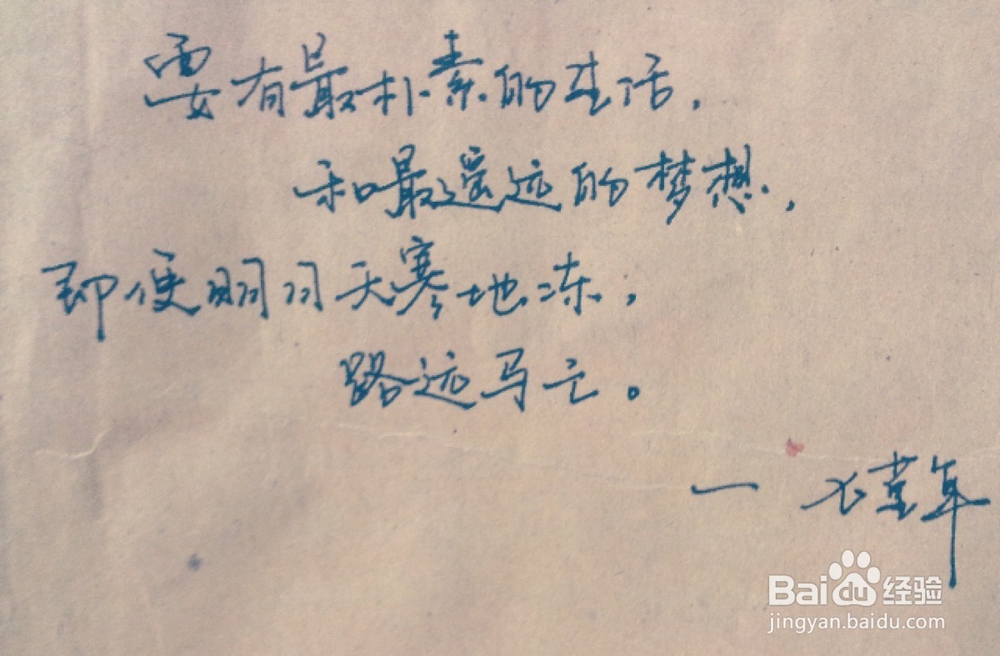 要有最朴素的生活，
和最遥远的梦想，
即便明日天寒地冻，
路远马亡。
一 七堇年
Baidu经验
jingyan.baidu.com